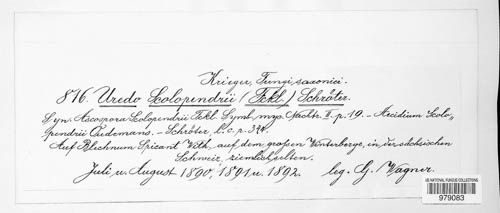 Krieger, Fungi saxonici.
876. Uredo Scolopendrii (Fckl.) Schröter.
Syn. Ascospora Scolopendrii Fckl. Symb. myc. Nachtr. II. p. 19. – Aecidium Scolo-
pendrii Oudemans. – Schröter, l. c. p. 374.
Auf Blechnum Spicant With., auf dem großen Winterberge, in der sächsischen
Schweiz, ziemlich selten.
Juli u. August 1890, 1891 u. 1892. leg. G. Wagner.
US NATIONAL FUNGUS COLLECTIONS
979083